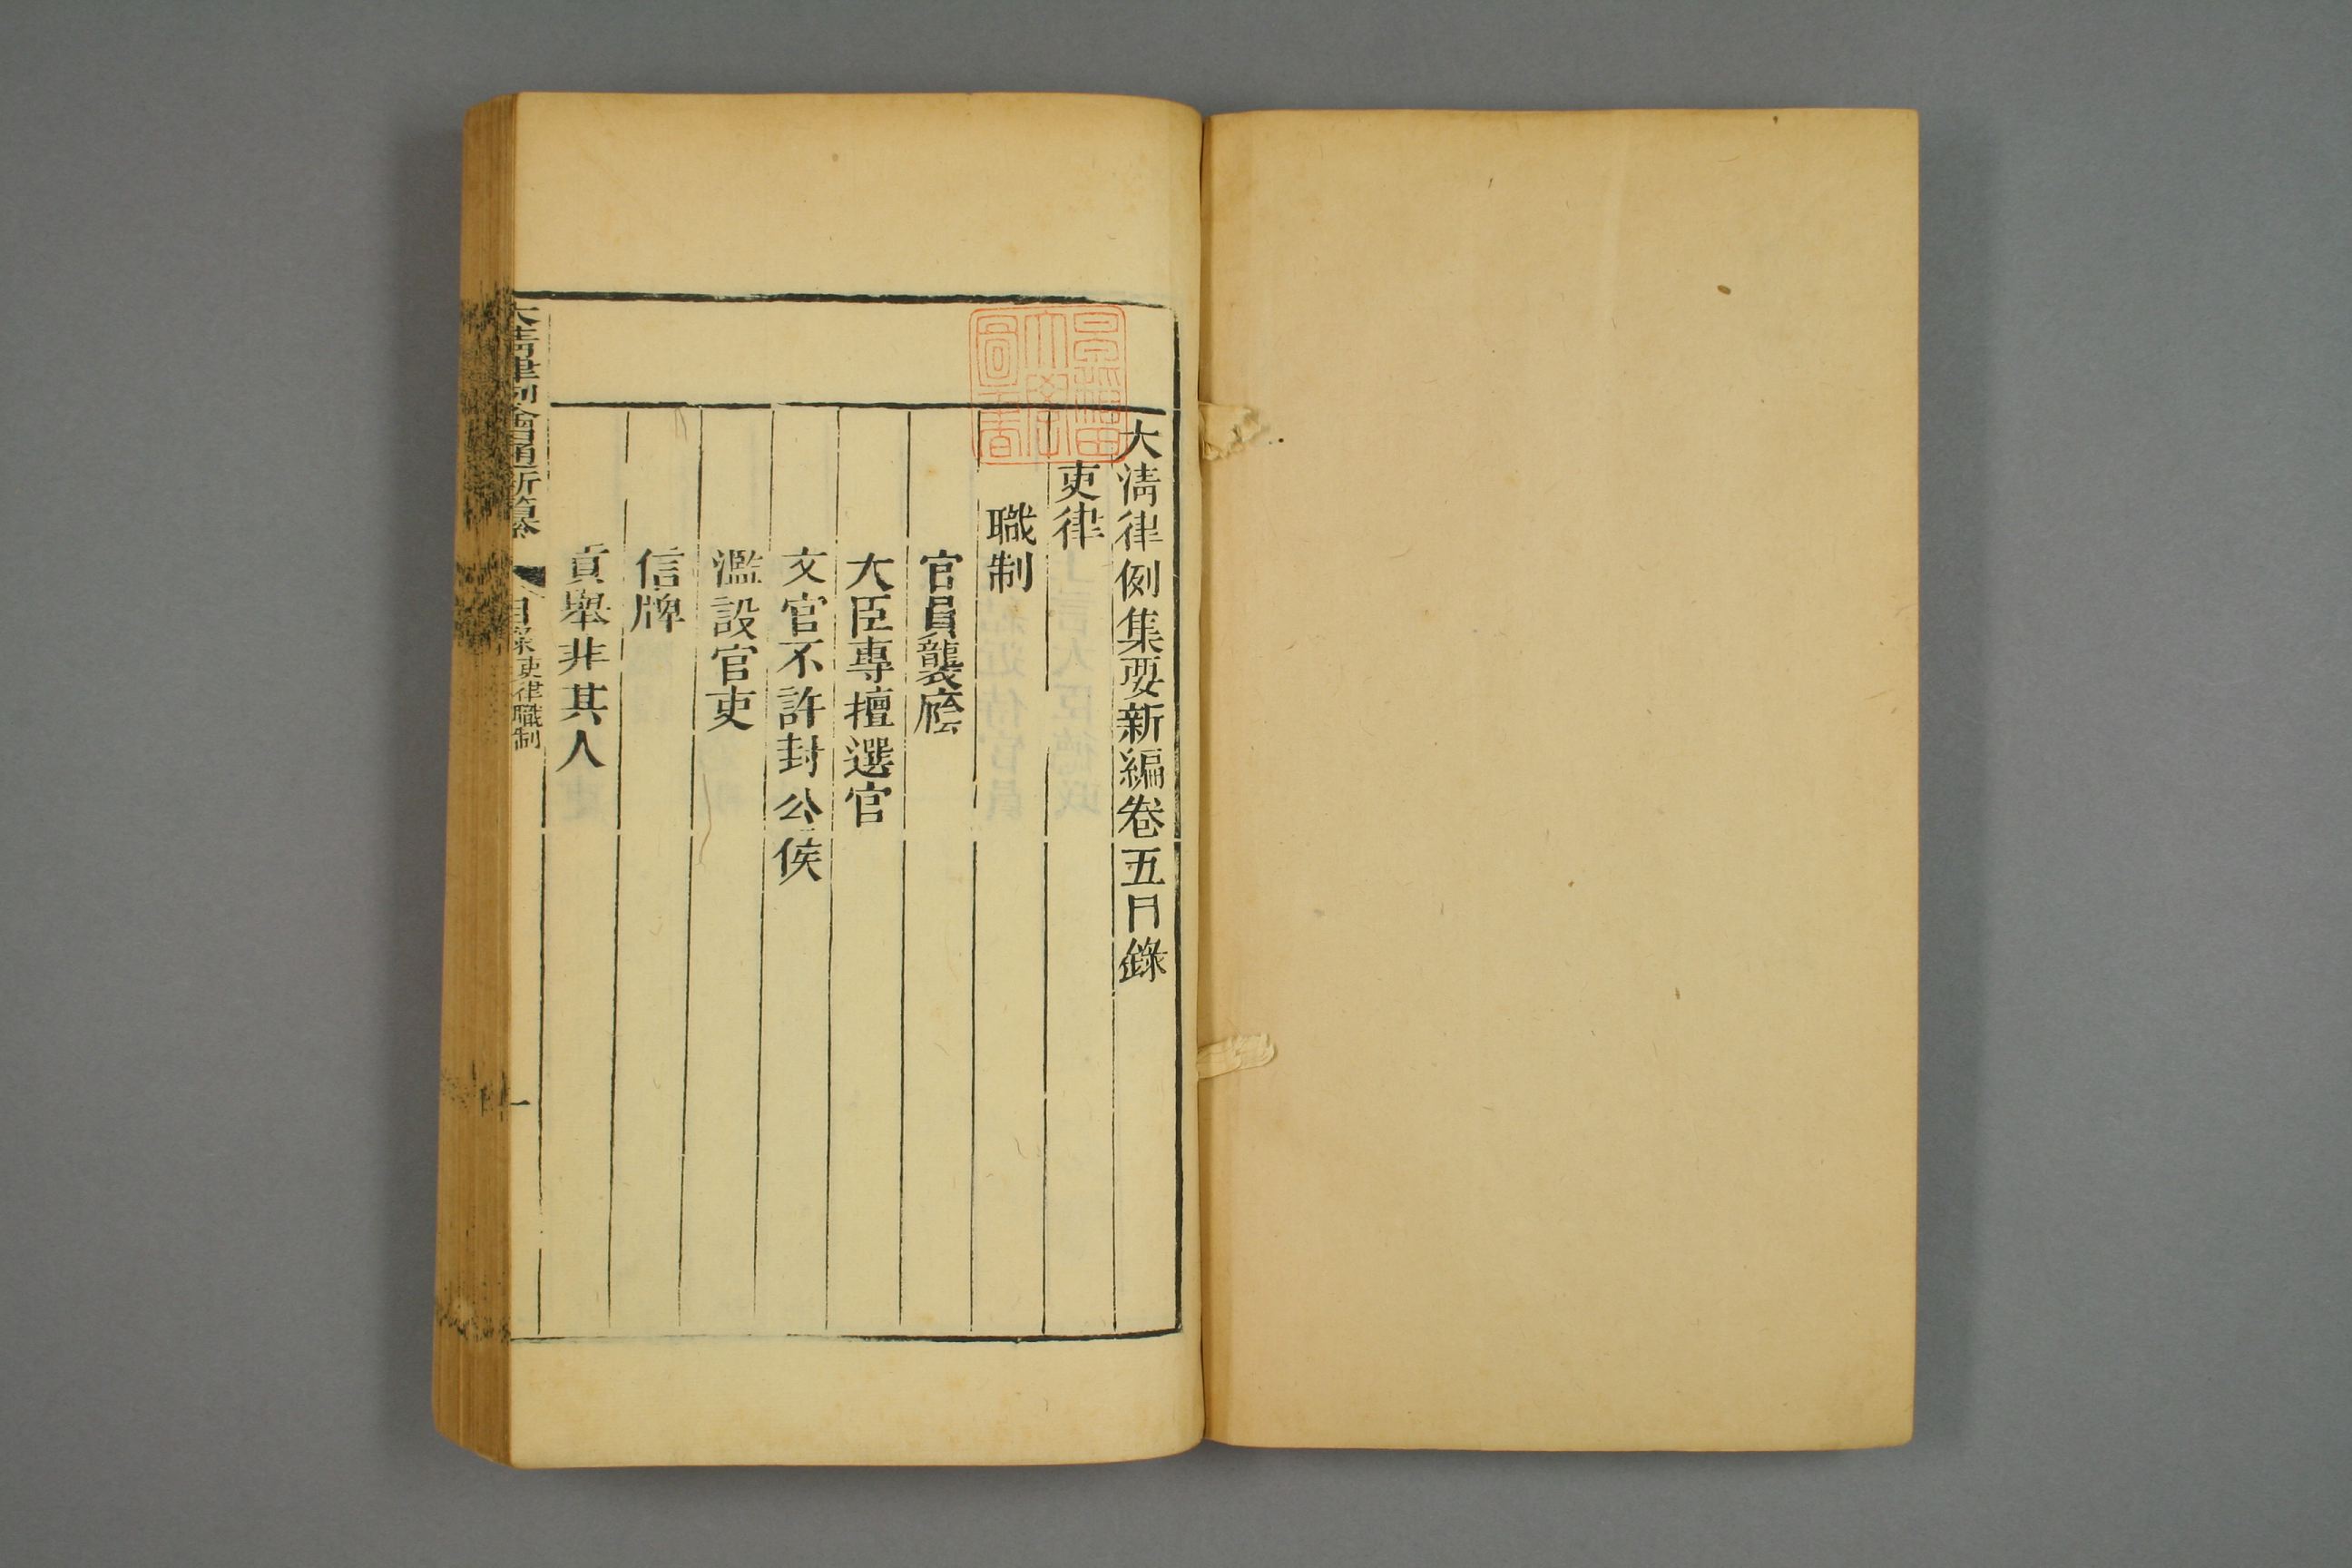 大清律例集要新編卷五目錄
吏律
職制
官員襲廕
大臣專擅選官
文官不許封公侯
濫設官吏
信牌
貢舉非其人
大清律例會通新纂
目錄 吏律職制
一